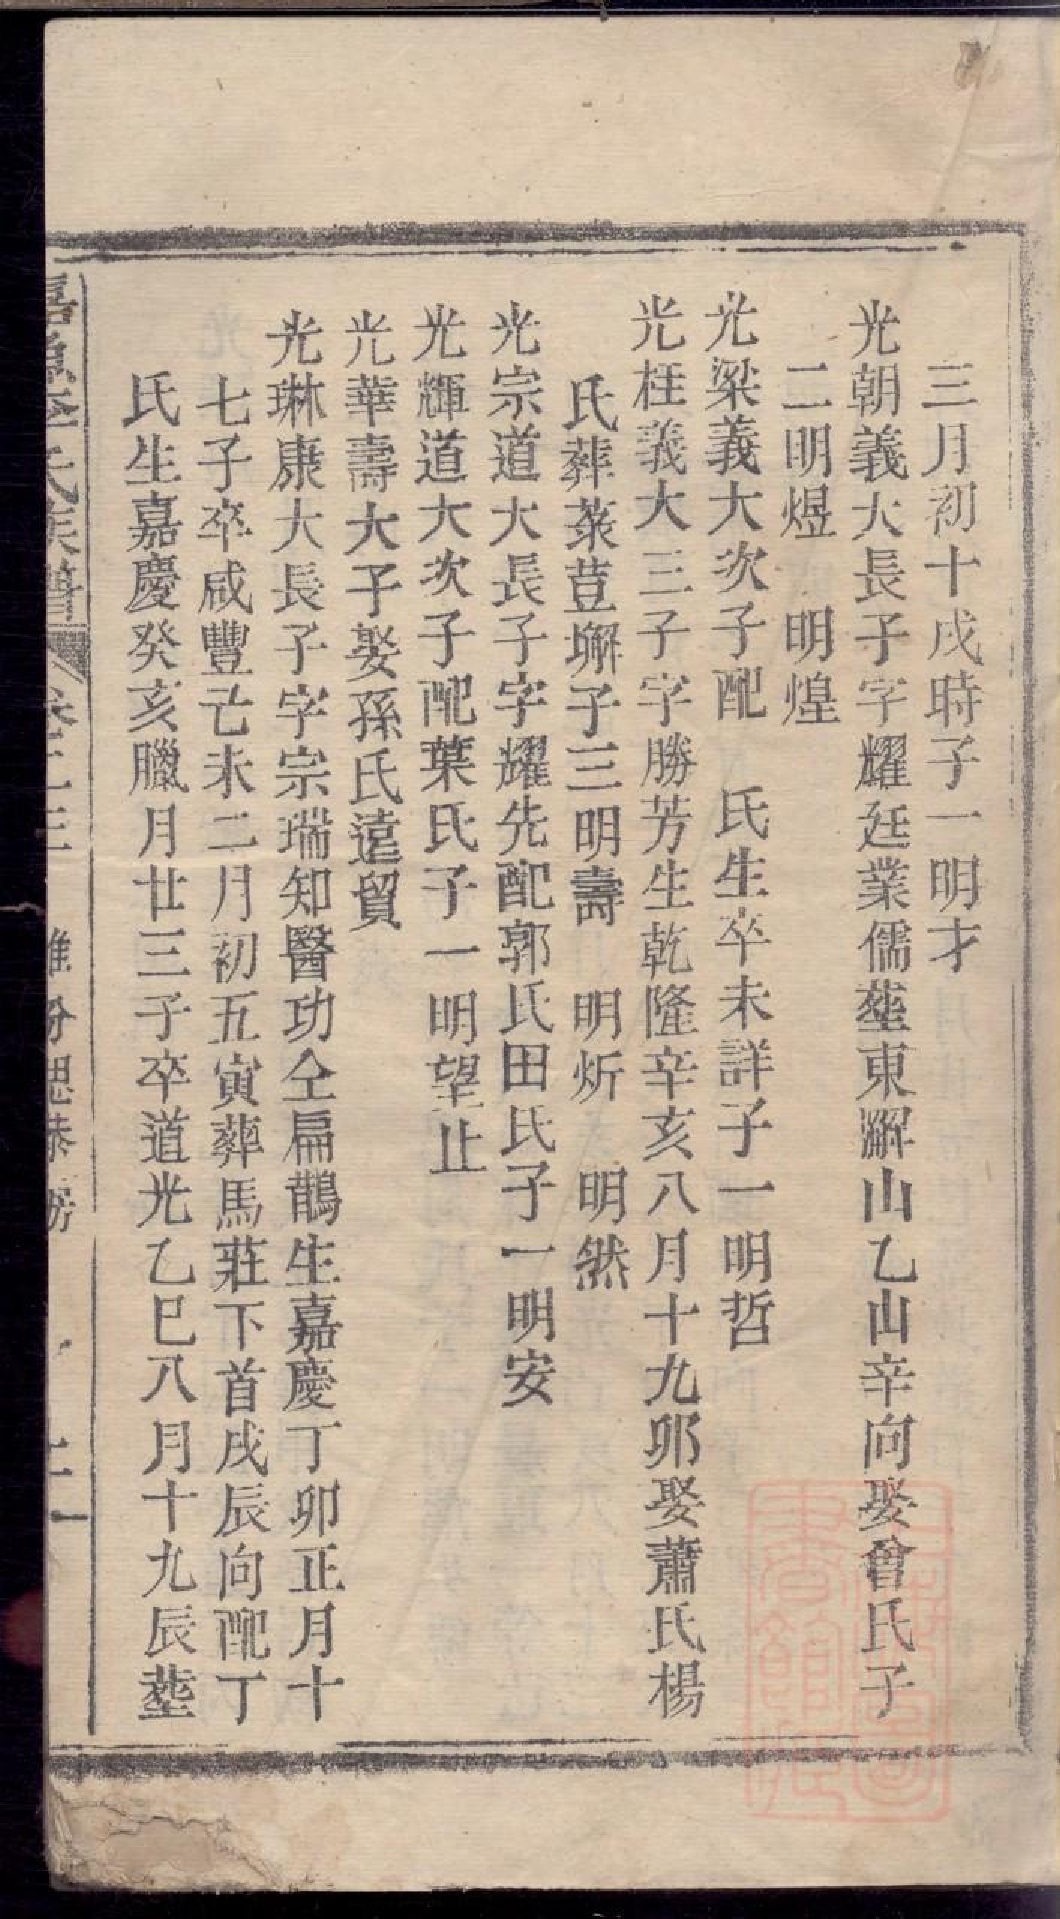 三月初十戌時子一明才
光朝義大長子字耀廷業儒塟東澥山乙山辛向娶曾氏子
二明煜　明煌
光梁義大次子配　氏生卒未詳子一明哲
光枉義大三子字勝芳生乾隆辛亥八月十九卯娶蕭氏楊
氏葬菉荳塀子三明壽　明炘　明然
光宗道大長子字耀先配郭氏田氏子一明安
光輝道大次子配葉氏子一明望止
光華壽大子娶孫氏遠貿
光琳康大長子字宗瑞知醫功仝扁鵲生嘉慶丁卯正月十
七子卒咸豐己未二月初五寅葬馬莊下首戌辰向配丁
氏生嘉慶癸亥臘月廿三子卒道光乙巳八月十九辰塟
氏族譜